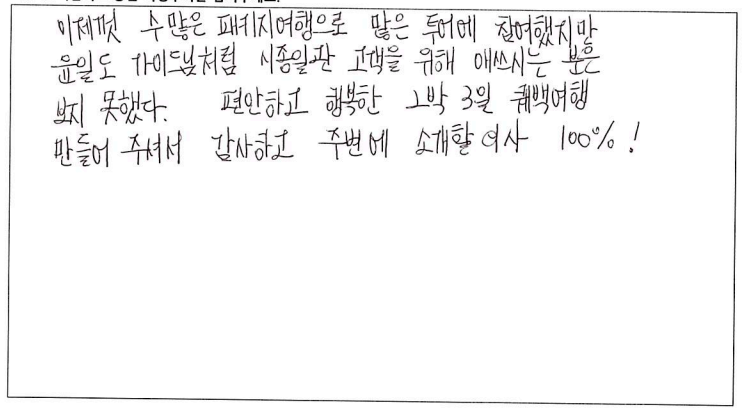 이제껏 수많은 패키지여행으로 많은 투어에 참여했지만
윤일도 가이드님처럼 시종일관 고객을 위해 애쓰시는 분은
보지 못했다. 편안하고 행복한 2박 3일 퀘백여행
만들어 주셔서 감사하고 주변에 소개할 의사 100%!